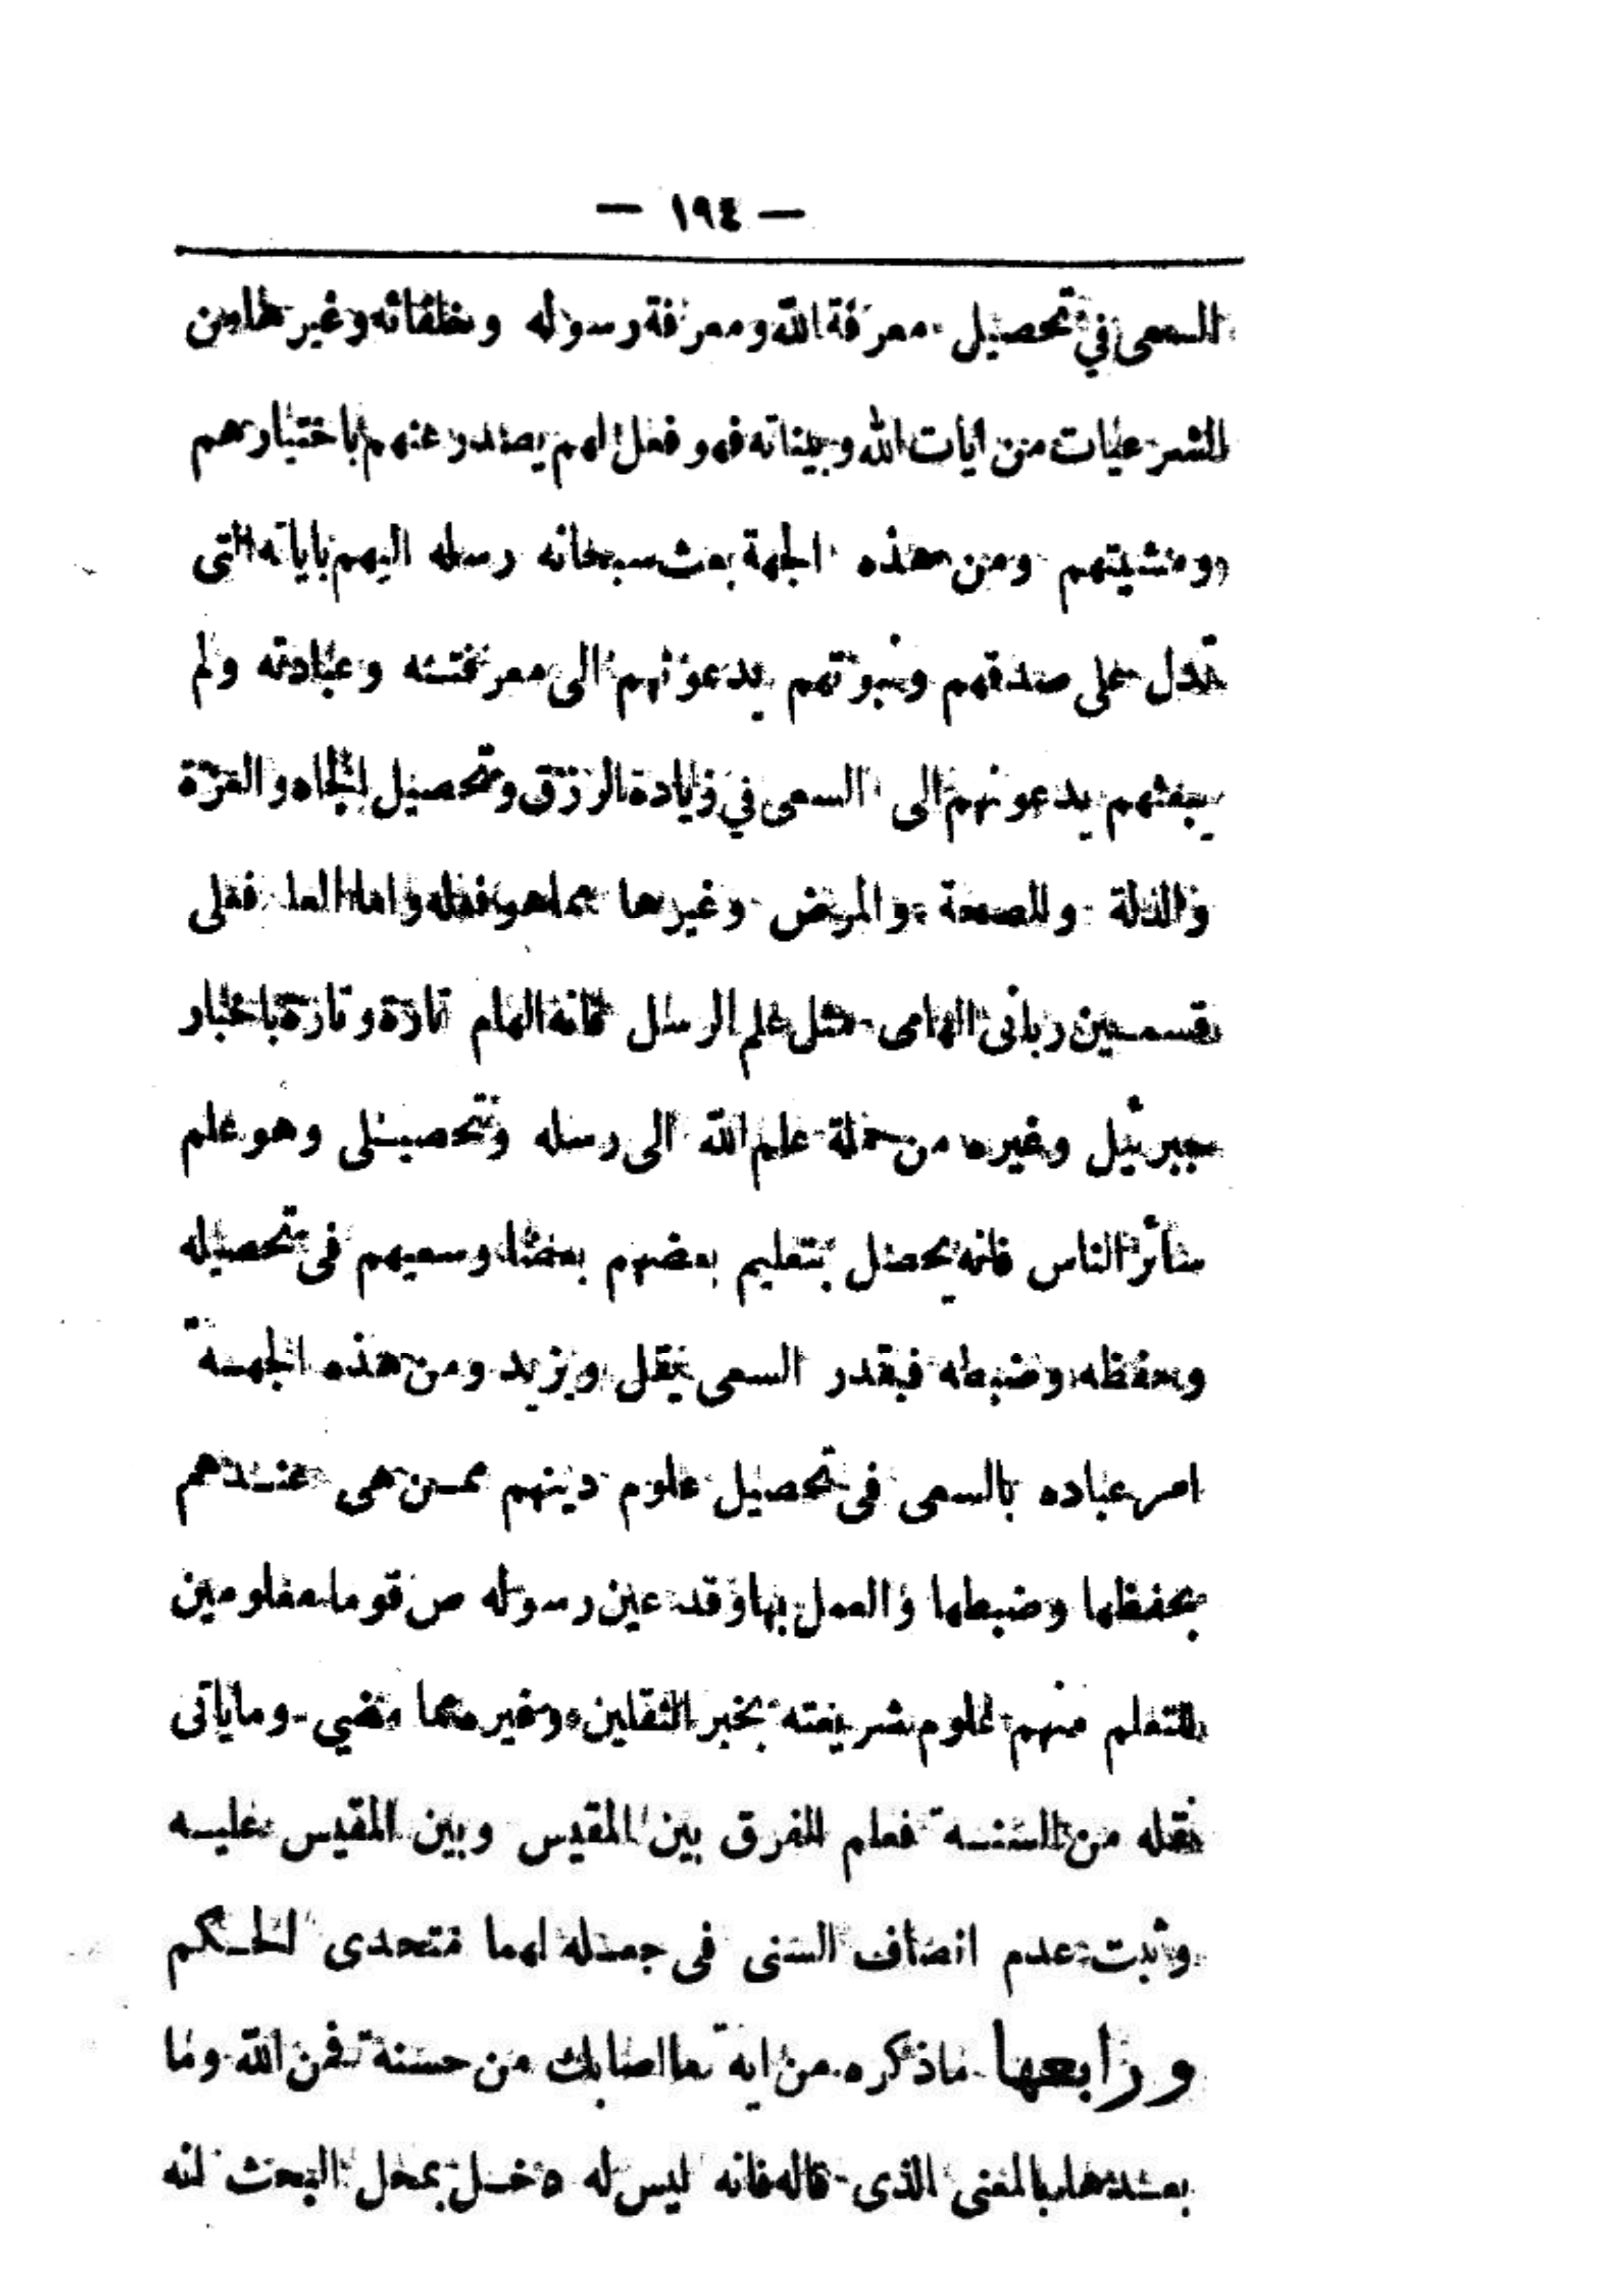 — ١٩٤ —
السعى في تحصيل معرفة الله ومعرفة رسوله وخلفائه وغيرها من
الشرعيات من ايات الله وبيناته فهو فعل لهم يصدر عنهم باختيارهم
ومشيتهم ومن هذه الجهة بعث سبحانه رسله اليهم باياته التى
تدل على صدقهم ونبوتهم يدعونهم الى معرفته وعبادته ولم
يبعثهم يدعونهم الى السعى في زيادة الرزق وتحصيل الجاه والعزة
والذلة والصحة والمرض وغيرها مما هو فعله واما العلم فعلى
قسمين ربانى الهامى مثل علم الرسل فانه الهام تارة وتارة باخبار
جبرئيل وغيره من حملة علم الله الى رسله وتحصيلى وهو علم
سائر الناس فانه يحصل بتعليم بعضهم بعضا وسعيهم فى تحصيله
وحفظه وضبطه فبقدر السعى يقل ويزيد ومن هذه الجهة
امر عباده بالسعى فى تحصيل علوم دينهم ممن هى عندهم
بحفظها وضبطها والعمل بها وقد عين رسوله ص قوما معلومين
للتعلم منهم لعلوم شريعته بخبر الثقلين وغيره مما مضي وما ياتى
نقله من السنة فعلم الفرق بين المقيس وبين المقيس عليه
وثبت عدم انصاف السنى فى جعله لهما متحدى الحكم
ورابعها ماذكره من اية ما اصابك من حسنة فمن الله وما
بعدها بالمعنى الذى قاله فانه ليس له دخل بمحل البحث لنه